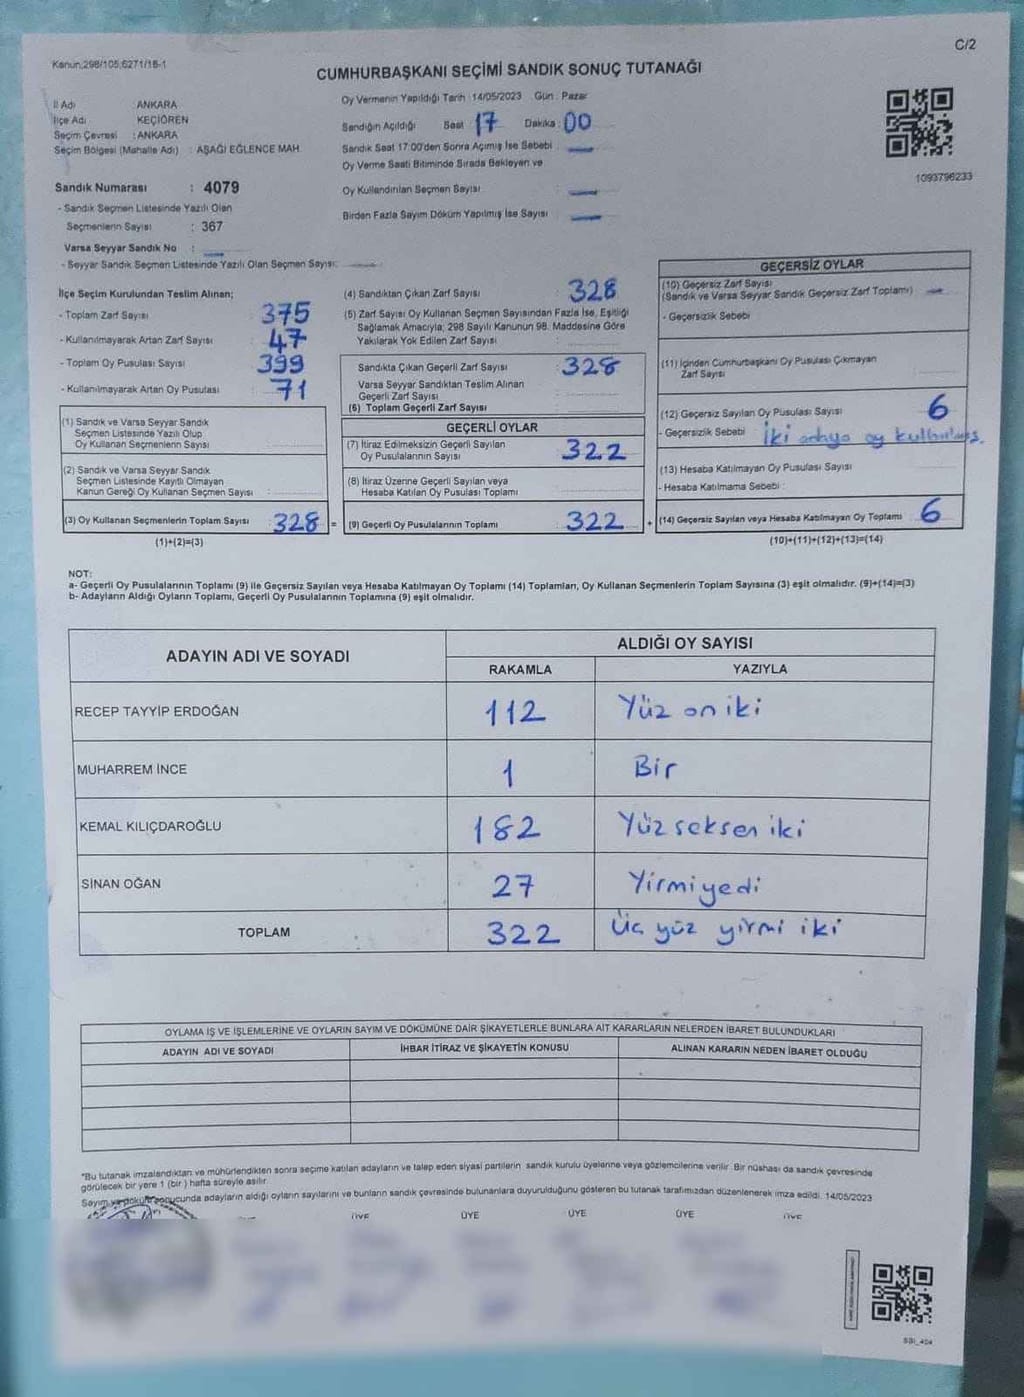 C/2
Kanun;298/105,6271/18-1
CUMHURBAŞKANI SEÇİMİ SANDIK SONUÇ TUTANAĞI
İl Adı ANKARA
İlçe Adı KEÇİÖREN
Seçim Çevresi : ANKARA
Seçim Bölgesi (Mahalle Adı) : AŞAĞI EĞLENCE MAH.
Sandık Numarası : 4079
- Sandık Seçmen Listesinde Yazılı Olan
Seçmenlerin Sayısı : 367
Varsa Seyyar Sandık No :
- Seyyar Sandık Seçmen Listesinde Yazılı Olan Seçmen Sayısı:
Oy Vermenin Yapıldığı Tarih : 14/05/2023 Gün : Pazar
Sandığın Açıldığı Saat 17 Dakika : 00
Sandık Saat 17:00'den Sonra Açımış İse Sebebi :
Oy Verme Saati Bitiminde Sırada Bekleyen ve
Oy Kullandırılan Seçmen Sayısı :
Birden Fazla Sayım Döküm Yapılmış İse Sayısı :
1093796233
İlçe Seçim Kurulundan Teslim Alınan;
- Toplam Zarf Sayısı 375
- Kullanılmayarak Artan Zarf Sayısı : 47
- Toplam Oy Pusulası Sayısı 399
- Kullanılmayarak Artan Oy Pusulası : 71
(1) Sandık ve Varsa Seyyar Sandık
Seçmen Listesinde Yazılı Olup
Oy Kullanan Seçmenlerin Sayısı :
(2) Sandık ve Varsa Seyyar Sandık
Seçmen Listesinde Kayıtlı Olmayan
Kanun Gereği Oy Kullanan Seçmen Sayısı :
(3) Oy Kullanan Seçmenlerin Toplam Sayısı : 328 =
(1)+(2)=(3)
(4) Sandıktan Çıkan Zarf Sayısı : 328
(5) Zarf Sayısı Oy Kullanan Seçmen Sayısından Fazla İse, Eşitliği
Sağlamak Amacıyla; 298 Sayılı Kanunun 98. Maddesine Göre
Yakılarak Yok Edilen Zarf Sayısı :
Sandıkta Çıkan Geçerli Zarf Sayısı : 328
Varsa Seyyar Sandıktan Teslim Alınan
Geçerli Zarf Sayısı :
(6) Toplam Geçerli Zarf Sayısı :
GEÇERLİ OYLAR
(7) İtiraz Edilmeksizin Geçerli Sayılan
Oy Pusulalarının Sayısı : 322
(8) İtiraz Üzerine Geçerli Sayılan veya
Hesaba Katılan Oy Pusulası Toplamı :
(9) Geçerli Oy Pusulalarının Toplamı : 322 +
GEÇERSİZ OYLAR
(10) Geçersiz Zarf Sayısı
(Sandık ve Varsa Seyyar Sandık Geçersiz Zarf Toplamı) :
- Geçersizlik Sebebi
(11) İçinden Cumhurbaşkanı Oy Pusulası Çıkmayan
Zarf Sayısı
(12) Geçersiz Sayılan Oy Pusulası Sayısı 6
- Geçersizlik Sebebi İki oy
(13) Hesaba Katılmayan Oy Pusulası Sayısı :
- Hesaba Katılmama Sebebi :
(14) Geçersiz Sayılan veya Hesaba Katılmayan Oy Toplamı 6
(10)+(11)+(12)+(13)=(14)
NOT:
a- Geçerli Oy Pusulalarının Toplamı (9) ile Geçersiz Sayılan veya Hesaba Katılmayan Oy Toplamı (14) Toplamları, Oy Kullanan Seçmenlerin Toplam Sayısına (3) eşit olmalıdır. (9)+(14)=(3)
b- Adayların Aldığı Oyların Toplamı, Geçerli Oy Pusulalarının Toplamına (9) eşit olmalıdır.
ADAYIN ADI VE SOYADI ALDIĞI OY SAYISI
RAKAMLA YAZIYLA
RECEP TAYYİP ERDOĞAN 112 Yüz on iki
MUHARREM İNCE 1 Bir
KEMAL KILIÇDAROĞLU 182 Yüz seksen iki
SİNAN OĞAN 27 Yirmiyedi
TOPLAM 322 Üç yüz yirmi iki
OYLAMA İŞ VE İŞLEMLERİNE VE OYLARIN SAYIM VE DÖKÜMÜNE DAİR ŞİKAYETLERLE BUNLARA AİT KARARLARIN NELERDEN İBARET BULUNDUKLARI
ADAYIN ADI VE SOYADI İHBAR İTİRAZ VE ŞİKAYETİN KONUSU ALINAN KARARIN NEDEN İBARET OLDUĞU
*Bu tutanak imzalandıktan ve mühürlendikten sonra seçime katılan adayların ve talep eden siyasi partilerin sandık kurulu üyelerine veya gözlemcilerine verilir. Bir nüshası da sandık çevresinde
görülecek bir yere 1 (bir) hafta süreyle asılır.
Sayım ve döküm sonucunda adayların aldığı oyların sayılarını ve bunların sandık çevresinde bulunanlara duyurulduğunu gösteren bu tutanak tarafımızdan düzenlenerek imza edildi. 14/05/2023
ÜYE ÜYE ÜYE ÜYE ÜYE
SSI_404